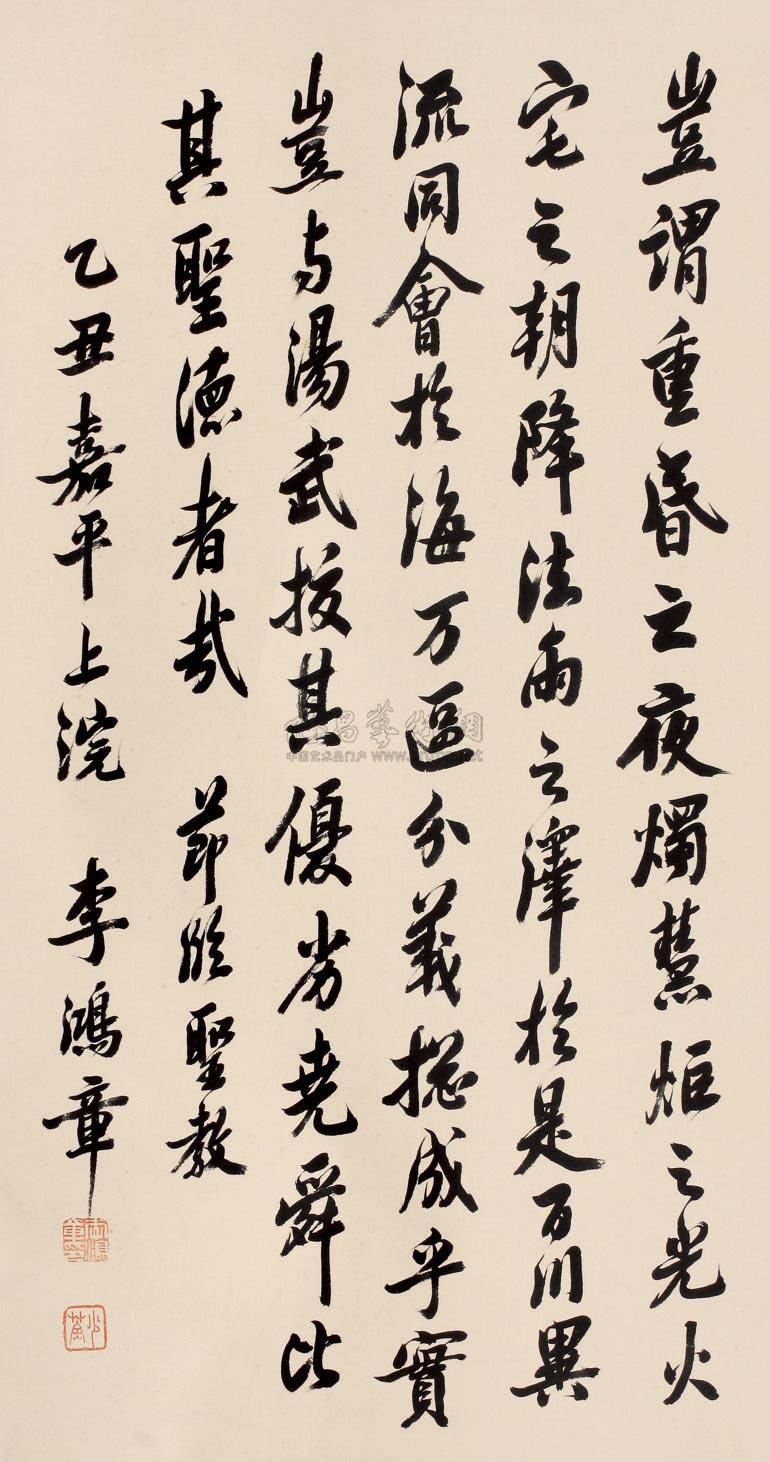 豈謂重昏之夜燭慧炬之光火
宅之朝降法雨之澤於是百川異
流同會於海万區分義揔成乎實
豈与湯武挍其優劣堯舜比
其聖德者哉 節臨聖教
乙丑嘉平上浣 李鴻章
少荃
中国艺术品门户